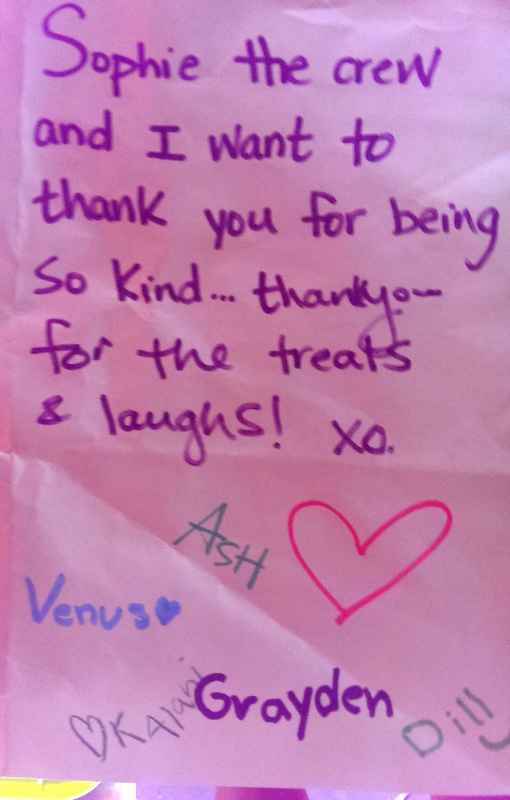 Sophie the crew
and I want to
thank you for being
so kind... thankyou
for the treats
& laughs! xo.
ASH
Venus
Kalani
Grayden
Dill